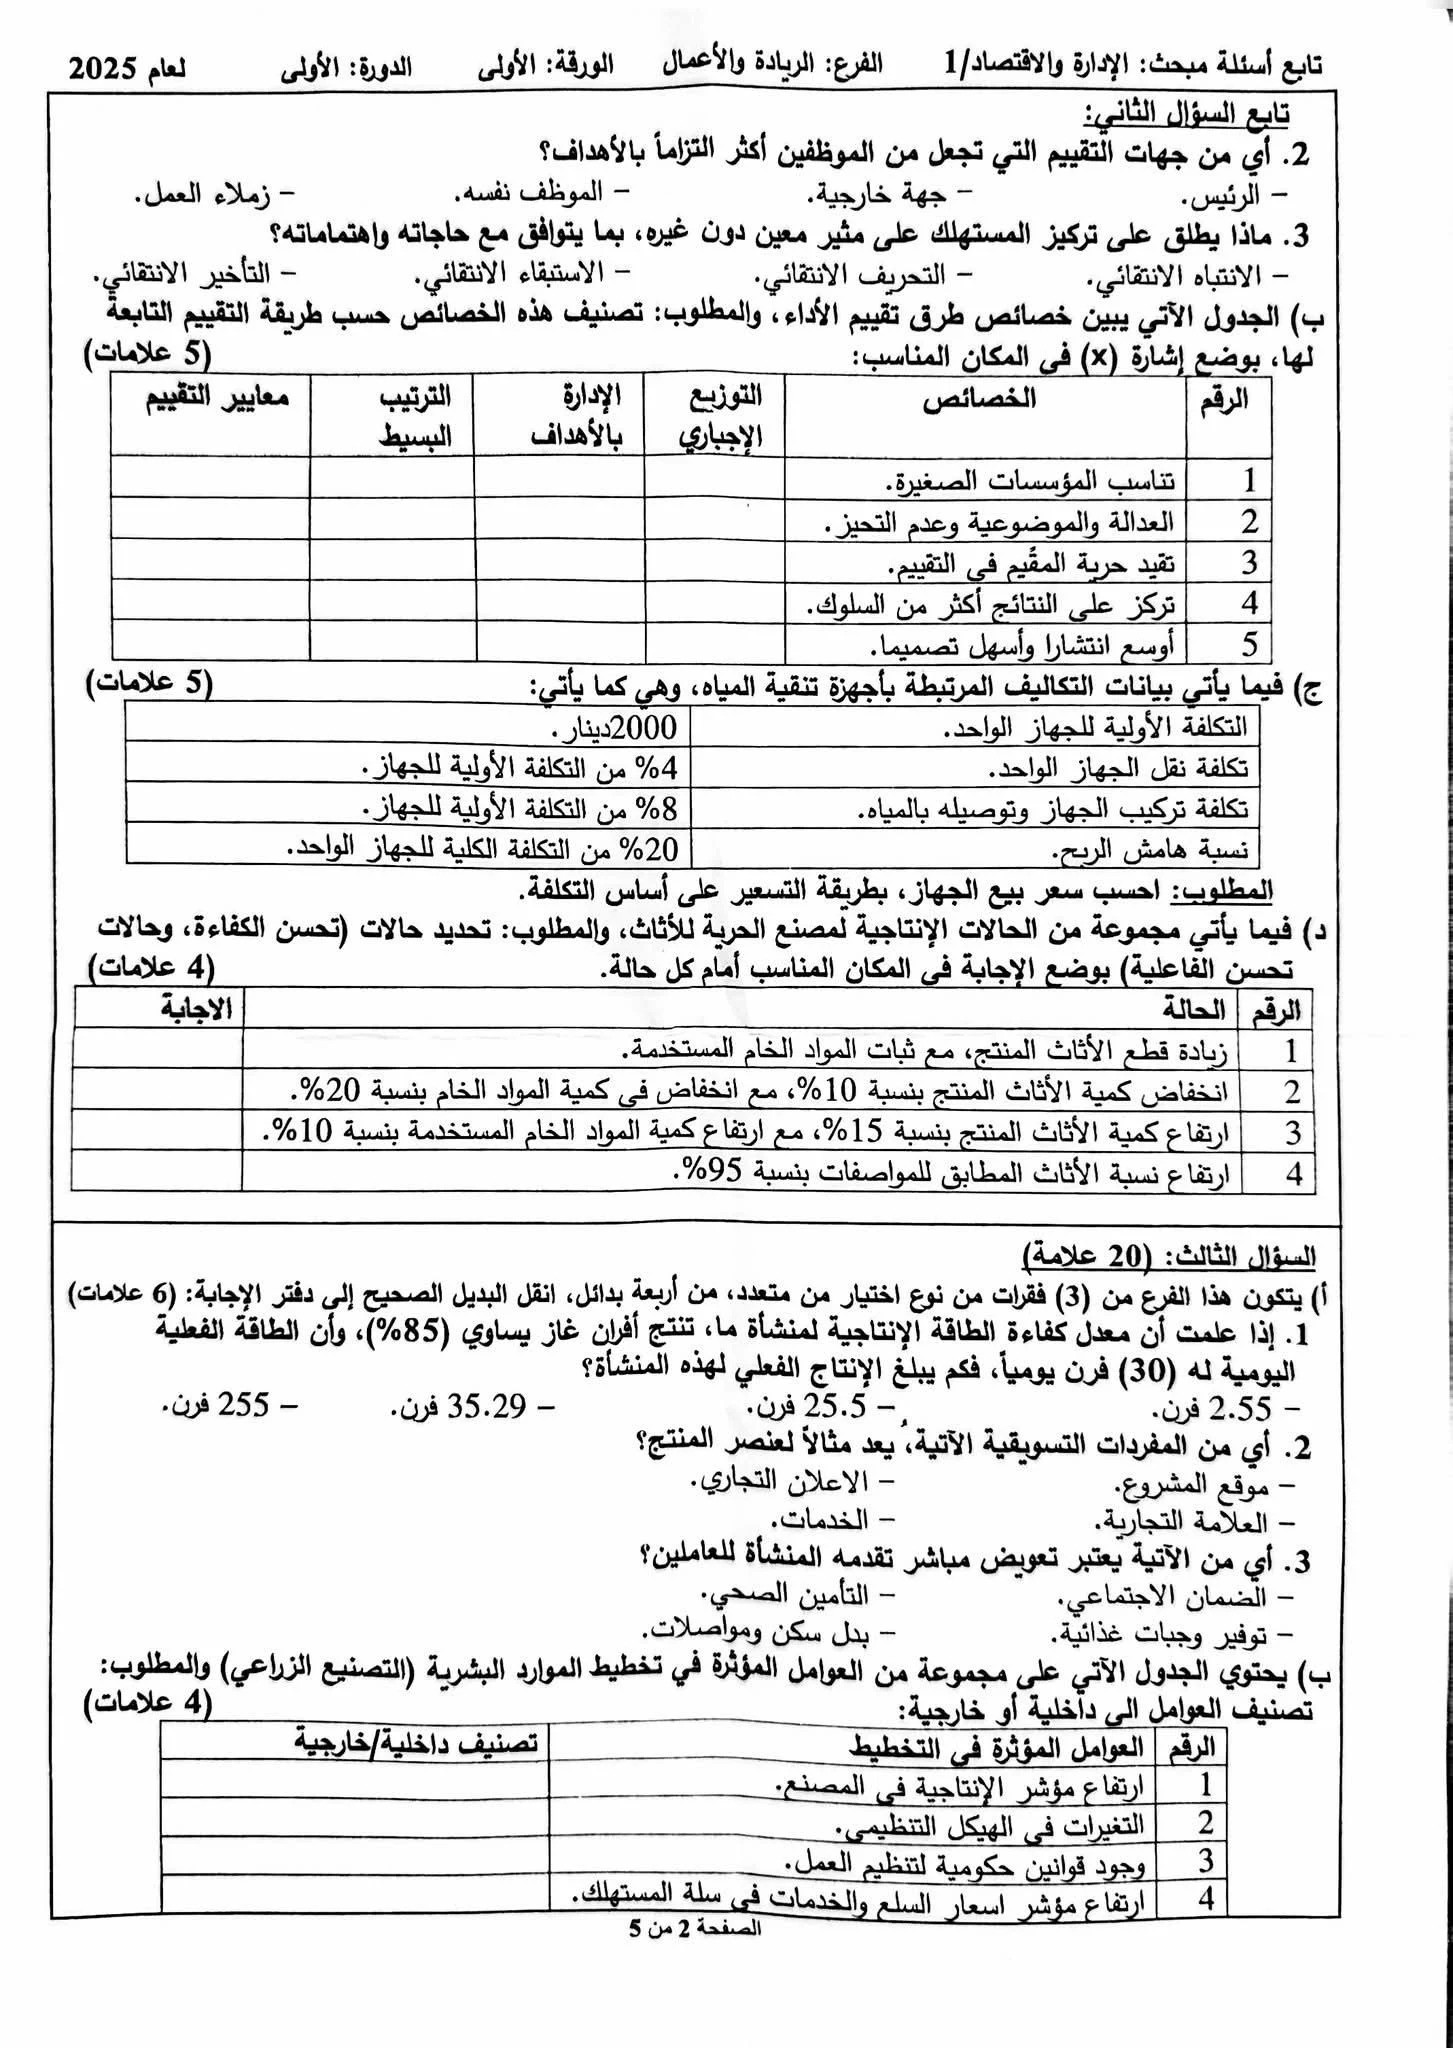 تابع أسئلة مبحث: الإدارة والاقتصاد/1 الفرع: الريادة والأعمال الورقة: الأولى الدورة: الأولى لعام 2025
تابع السؤال الثاني:
2. أي من جهات التقييم التي تجعل من الموظفين أكثر التزاماً بالأهداف؟
– الرئيس. – جهة خارجية. – الموظف نفسه. – زملاء العمل.
3. ماذا يطلق على تركيز المستهلك على مثير معين دون غيره، بما يتوافق مع حاجاته واهتماماته؟
– الانتباه الانتقائي. – التحريف الانتقائي. – الاستبقاء الانتقائي. – التأخير الانتقائي.
ب) الجدول الآتي يبين خصائص طرق تقييم الأداء، والمطلوب: تصنيف هذه الخصائص حسب طريقة التقييم التابعة
لها، بوضع إشارة (x) في المكان المناسب: (5 علامات)
الرقم الخصائص التوزيع الإجباري الإدارة بالأهداف الترتيب البسيط معايير التقييم
1 تناسب المؤسسات الصغيرة.
2 العدالة والموضوعية وعدم التحيز.
3 تقيد حرية المقُيم في التقييم.
4 تركز على النتائج أكثر من السلوك.
5 أوسع انتشارا وأسهل تصميما.
ج) فيما يأتي بيانات التكاليف المرتبطة بأجهزة تنقية المياه، وهي كما يأتي: (5 علامات)
التكلفة الأولية للجهاز الواحد. 2000دينار.
تكلفة نقل الجهاز الواحد. 4% من التكلفة الأولية للجهاز.
تكلفة تركيب الجهاز وتوصيله بالمياه. 8% من التكلفة الأولية للجهاز.
نسبة هامش الربح. 20% من التكلفة الكلية للجهاز الواحد.
المطلوب: احسب سعر بيع الجهاز، بطريقة التسعير على أساس التكلفة.
د) فيما يأتي مجموعة من الحالات الإنتاجية لمصنع الحرية للأثاث، والمطلوب: تحديد حالات (تحسن الكفاءة، وحالات
تحسن الفاعلية) بوضع الإجابة في المكان المناسب أمام كل حالة. (4 علامات)
الرقم الحالة الاجابة
1 زيادة قطع الأثاث المنتج، مع ثبات المواد الخام المستخدمة.
2 انخفاض كمية الأثاث المنتج بنسبة 10%، مع انخفاض في كمية المواد الخام بنسبة 20%.
3 ارتفاع كمية الأثاث المنتج بنسبة 15%، مع ارتفاع كمية المواد الخام المستخدمة بنسبة 10%.
4 ارتفاع نسبة الأثاث المطابق للمواصفات بنسبة 95%.
السؤال الثالث: (20 علامة)
أ) يتكون هذا الفرع من (3) فقرات من نوع اختيار من متعدد، من أربعة بدائل، انقل البديل الصحيح إلى دفتر الإجابة: (6 علامات)
1. إذا علمت أن معدل كفاءة الطاقة الإنتاجية لمنشأة ما، تنتج أفران غاز يساوي (85%)، وأن الطاقة الفعلية
اليومية له (30) فرن يومياً، فكم يبلغ الإنتاج الفعلي لهذه المنشأة؟
– 2.55 فرن. – 25.5 فرن. – 35.29 فرن. – 255 فرن.
2. أي من المفردات التسويقية الآتية، يعد مثالاً لعنصر المنتج؟
– موقع المشروع. – الاعلان التجاري.
– العلامة التجارية. – الخدمات.
3. أي من الآتية يعتبر تعويض مباشر تقدمه المنشأة للعاملين؟
– الضمان الاجتماعي. – التأمين الصحي.
– توفير وجبات غذائية. – بدل سكن ومواصلات.
ب) يحتوي الجدول الآتي على مجموعة من العوامل المؤثرة في تخطيط الموارد البشرية (التصنيع الزراعي) والمطلوب:
تصنيف العوامل الى داخلية أو خارجية: (4 علامات)
الرقم العوامل المؤثرة في التخطيط تصنيف داخلية/خارجية
1 ارتفاع مؤشر الإنتاجية في المصنع.
2 التغيرات في الهيكل التنظيمي.
3 وجود قوانين حكومية لتنظيم العمل.
4 ارتفاع مؤشر اسعار السلع والخدمات في سلة المستهلك.
الصفحة 2 من 5